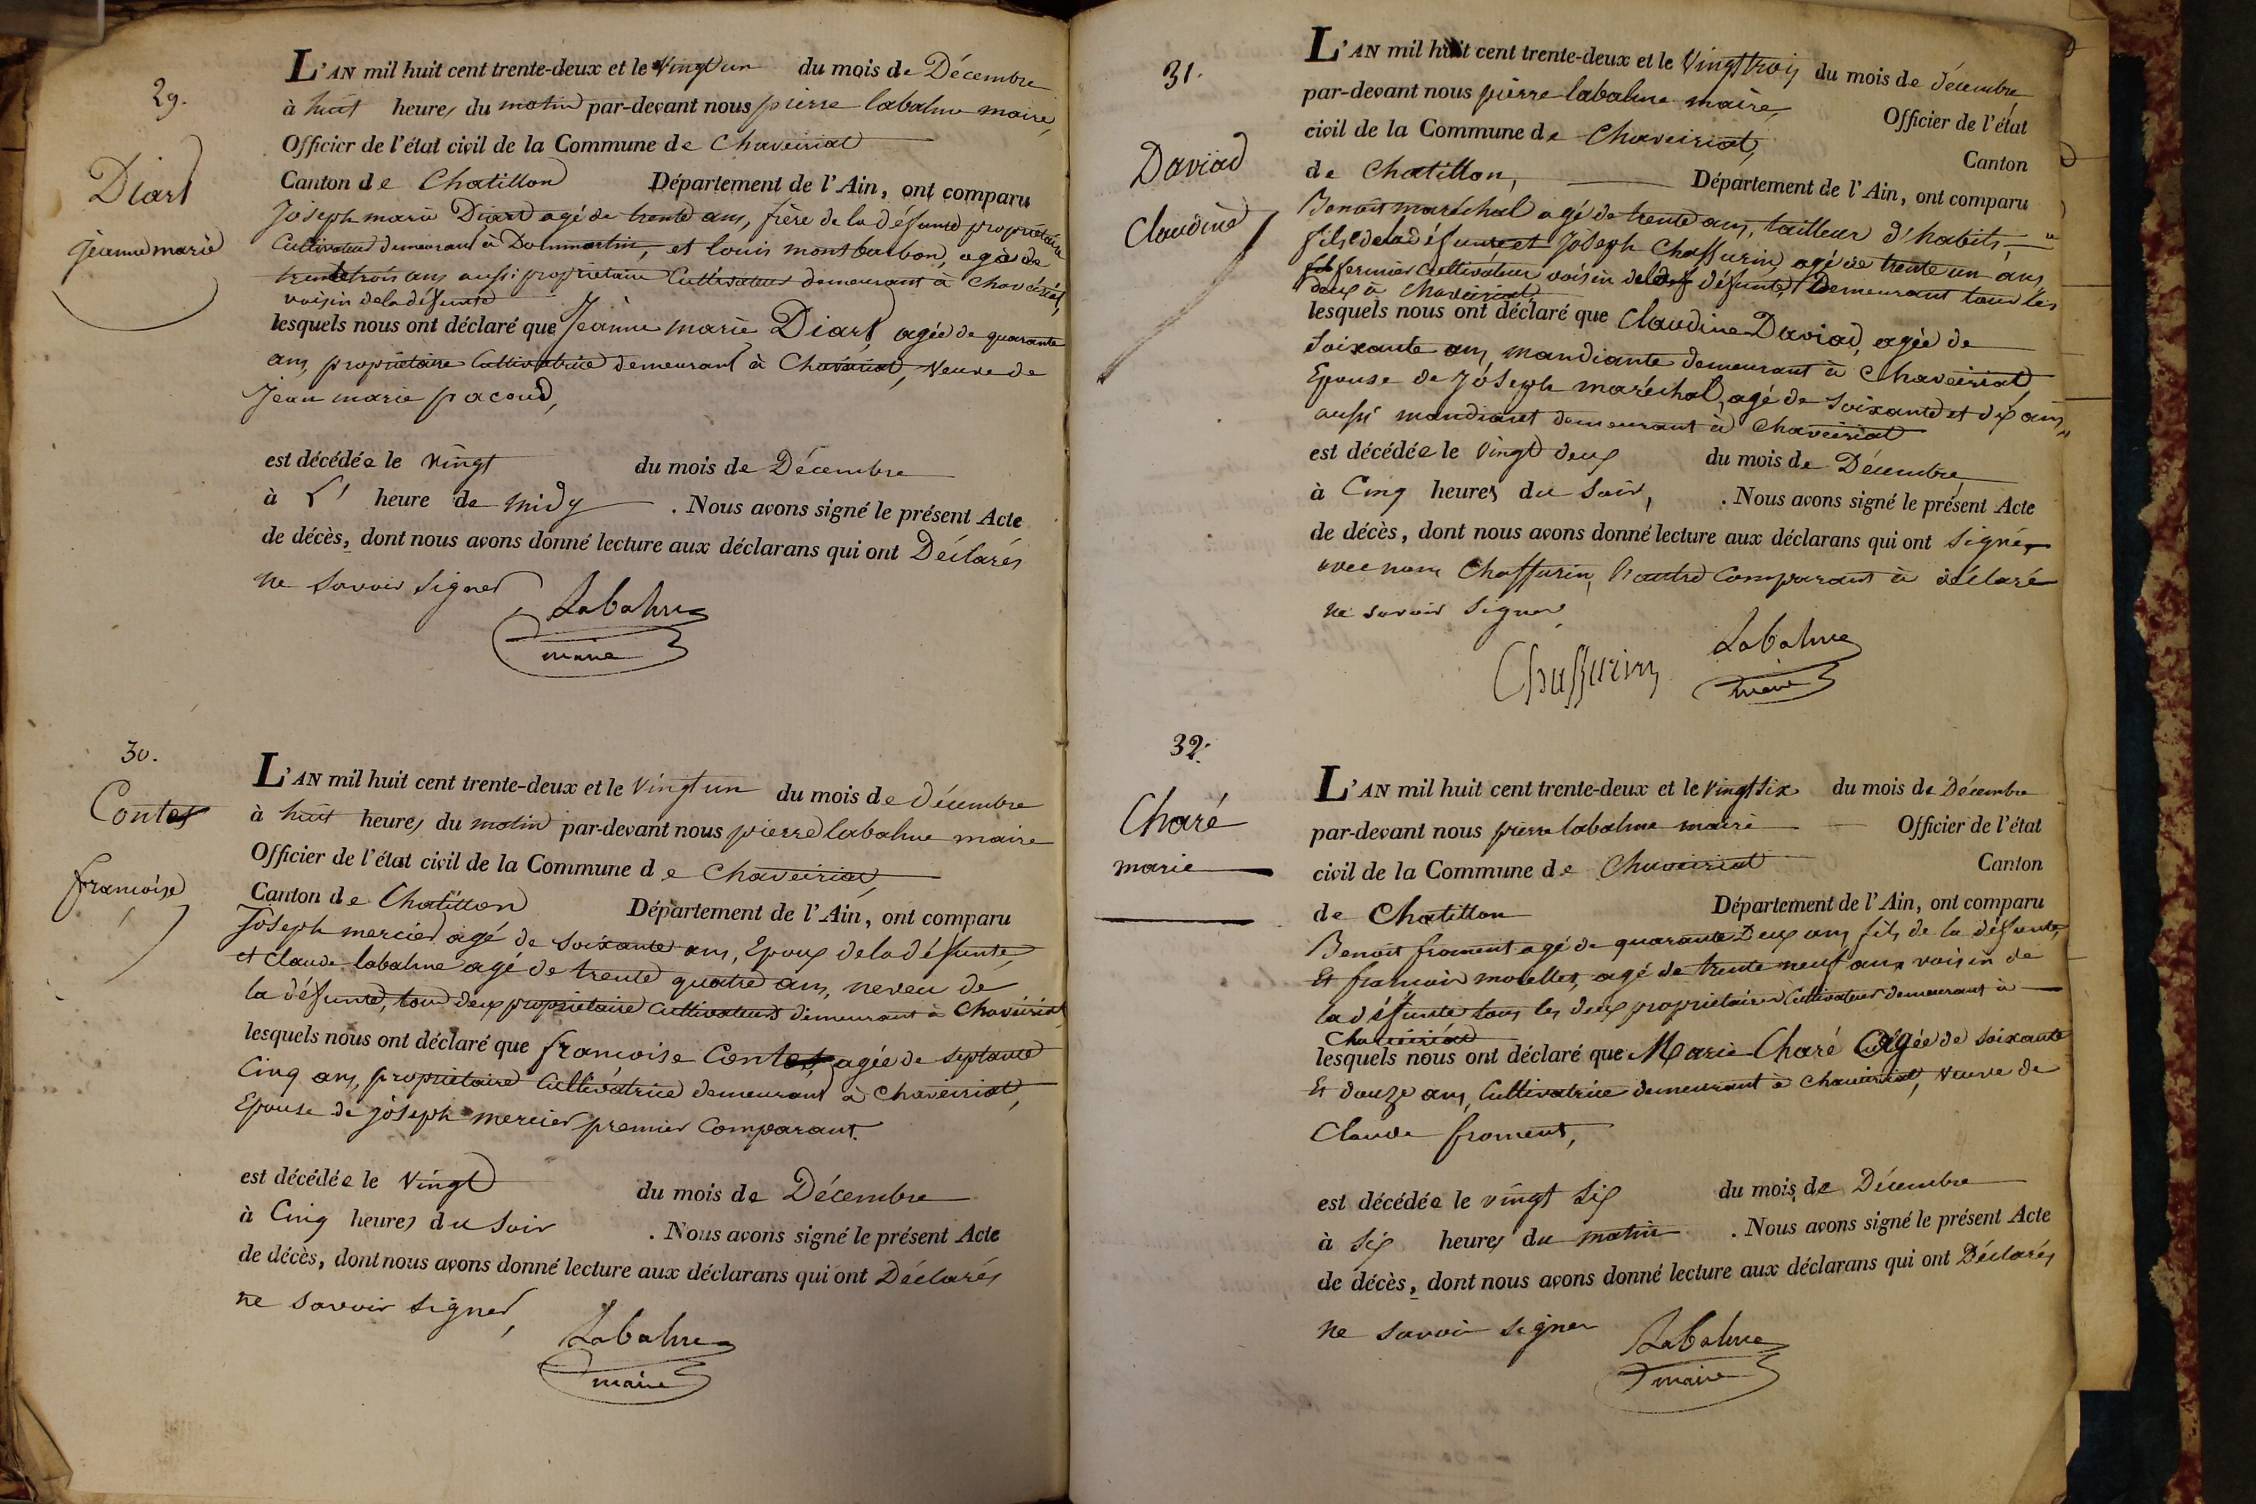 29.
Diard
jeanne marie
L'AN mil huit cent trente-deux et le vingt un du mois de Décembre
à huit heures du matin par-devant nous pierre labalme maire,
Officier de l'état civil de la Commune de Chaveiriat
Canton de Chatillon Département de l'Ain, ont comparu
Joseph marie Diard agé de trente ans, frère de la défunte propriétaire
Cultivateur demeurant à Dommartin, et louis montbarbon, agé de
trente trois ans aussi propriétaire Cultivateur demeurant à Chaveiriat,
voisin de la défunte
lesquels nous ont déclaré que Jeanne marie Diard, agée de quarante
ans, propriétaire Cultivatrice demeurant à Chaveiriat, veuve de
Jean marie pacoud,
est décédée le vingt du mois de Décembre
à L' heure de midy . Nous avons signé le présent Acte
de décès, dont nous avons donné lecture aux déclarans qui ont Déclarés
ne savoir signer,
Labalme
maire
30.
Contet
francoise
L'AN mil huit cent trente-deux et le vingt un du mois de Décembre
à huit heures du matin par-devant nous pierre labalme maire
Officier de l'état civil de la Commune de Chaveiriat,
Canton de Chatillon Département de l'Ain, ont comparu
Joseph mercier agé de soixante ans, Epoux de la défunte,
et Claude labalme agé de trente quatre ans, neveu de
la défunte, tous deux propriétaire Cultivateurs demeurant à Chaveiriat
lesquels nous ont déclaré que françoise Contet, agée de septante
Cinq ans, propriétaire Cultivatrice demeurant à Chaveiriat,
Epouse de joseph mercier premier Comparant.
est décédée le vingt du mois de Décembre
à Cinq heures du soir . Nous avons signé le présent Acte
de décès, dont nous avons donné lecture aux déclarans qui ont Déclarés
ne savoir signer,
Labalme
maire
31.
Daviad
Claudine
L'AN mil huit cent trente-deux et le vingt trois du mois de décembre
par-devant nous pierre labalme maire, Officier de l'état
civil de la Commune de Chaveiriat, Canton
de Chatillon, Département de l'Ain, ont comparu
Benoit maréchal agé de trente ans, tailleur d'habits,
fils de la défunte et Joseph Chaffurin, agé de trente un ans
fermier Cultivateur voisin de la défunte, Demeurant tous les
deux à Chaveiriat
lesquels nous ont déclaré que Claudine Daviad, agée de
soixante ans, mandiante demeurant à Chaveiriat
Epouse de Joseph maréchal, agé de soixante et dix ans,
aussi mandiant demeurant à Chaveiriat
est décédée le vingt deux du mois de Décembre,
à Cinq heures du soir, . Nous avons signé le présent Acte
de décès, dont nous avons donné lecture aux déclarans qui ont signé,
avec nous Chaffurin, l'autre Comparant à déclaré
ne savoir signer,
Chaffurin
Labalme
maire
32.
Charé
marie
L'AN mil huit cent trente-deux et le vingt six du mois de Décembre
par-devant nous pierre labalme maire Officier de l'état
civil de la Commune de Chaveiriat Canton
de Chatillon Département de l'Ain, ont comparu
Benoit froment agé de quarante Deux ans, fils de la défunte,
Et francois morellet, agé de trente neuf ans voisin de
la défunte tous les deux propriétaires Cultivateurs demeurant à
Chaveiriat
lesquels nous ont déclaré que Marie Charé Agée de soixante
Et douze ans, Cultivatrice demeurant à Chaveiriat, veuve de
Claude froment,
est décédée le vingt six du mois de Décembre
à six heures du matin . Nous avons signé le présent Acte
de décès, dont nous avons donné lecture aux déclarans qui ont Déclarés
ne savoir signer
Labalme
maire